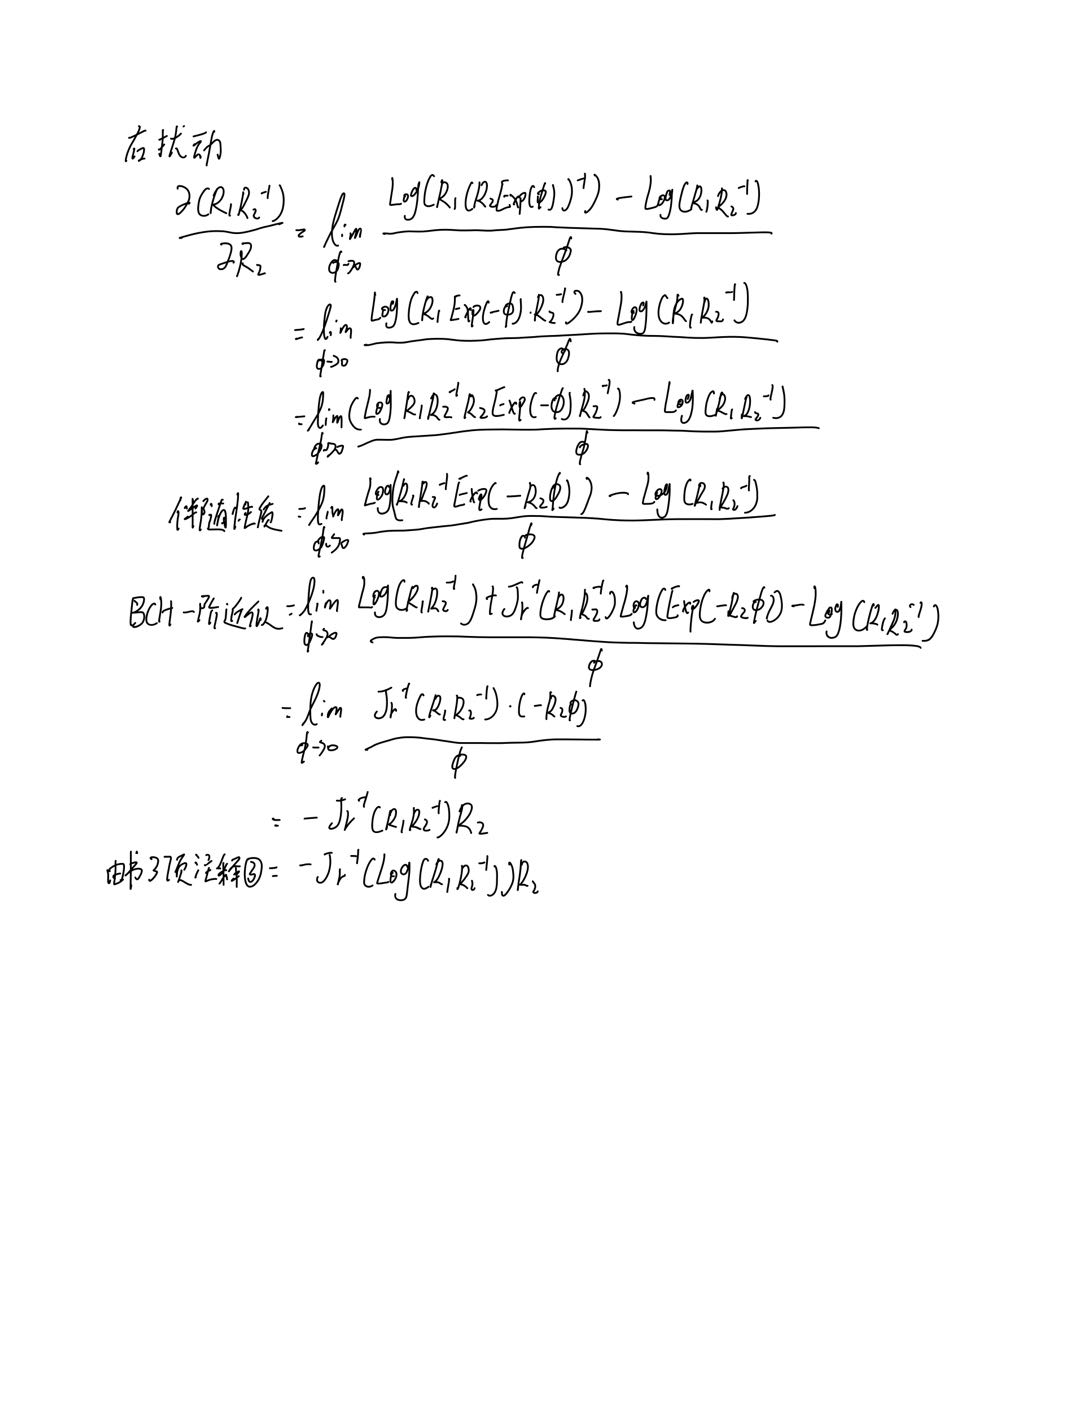 右扰动
∂(R₁R₂⁻¹)/∂R₂ = lim_{ϕ→0} (Log(R₁(R₂Exp(ϕ))⁻¹) − Log(R₁R₂⁻¹))/ϕ
= lim_{ϕ→0} (Log(R₁Exp(-ϕ)·R₂⁻¹) − Log(R₁R₂⁻¹))/ϕ
= lim_{ϕ→0} (Log R₁R₂⁻¹R₂Exp(-ϕ)R₂⁻¹) − Log(R₁R₂⁻¹)/ϕ
伴随性质 = lim_{ϕ→0} (Log(R₁R₂⁻¹Exp(-R₂ϕ)) − Log(R₁R₂⁻¹))/ϕ
BCH一阶近似 = lim_{ϕ→0} (Log(R₁R₂⁻¹) + Jr⁻¹(R₁R₂⁻¹)Log(Exp(-R₂ϕ)) − Log(R₁R₂⁻¹))/ϕ
= lim_{ϕ→0} (Jr⁻¹(R₁R₂⁻¹)·(-R₂ϕ))/ϕ
= -Jr⁻¹(R₁R₂⁻¹)R₂
由书37页注释③ = -Jr⁻¹(Log(R₁R₂⁻¹))R₂